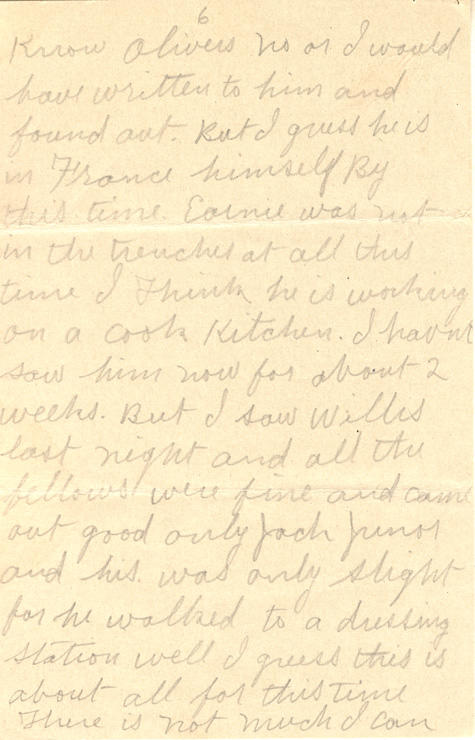 6
Know Olivers no or I would
have written to him and
found out. But I guess he is
in France himself By
this time. Earnie was not
in the trenches at all this
time I Think he is working
on a cook Kitchen. I havnt
saw him now for about 2
weeks. But I saw Willis
last night and all the
fellows were fine and came
out good only Jack Junor
and his was only slight
for he walked to a dressing
station well I guess this is
about all for this time
There is not much I can